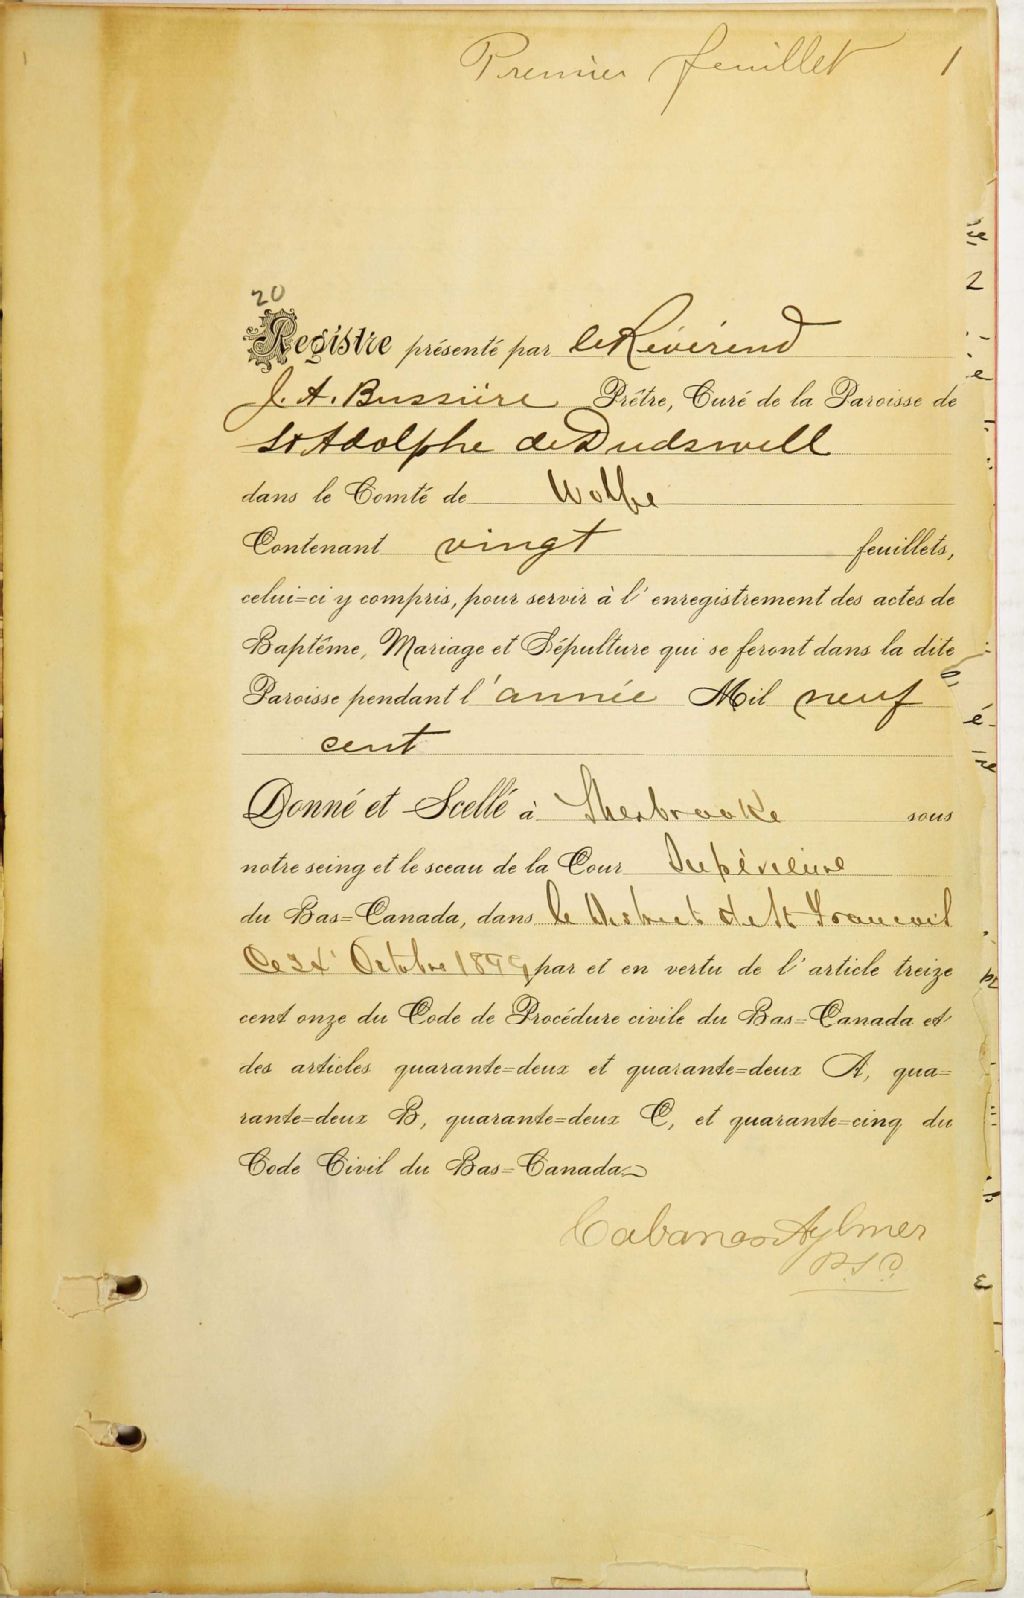 Premier feuillet 1
20
Registre présenté par le Révérend
J. A. Bussière Prêtre, Curé de la Paroisse de
St Adolphe de Dudswell
dans le Comté de Wolfe
Contenant vingt feuillets,
celui=ci y compris, pour servir à l'enregistrement des actes de
Baptême, Mariage et Sépulture qui se feront dans la dite
Paroisse pendant l'année Mil neuf
cent
Donné et Scellé à Sherbrooke sous
notre seing et le sceau de la Cour Supérieure
du Bas=Canada, dans le District de St Francois
Ce Octobre 1899 par et en vertu de l'article treize
cent onze du Code de Procédure civile du Bas=Canada et
des articles quarante=deux et quarante=deux A, qua=
rante=deux B, quarante=deux C, et quarante=cinq du
Code Civil du Bas=Canada
Cabana &amp; Aylmer
P.S.C.